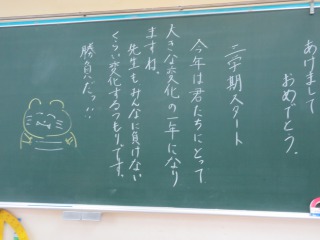 あけまして
おめでとう。
三学期スタート
今年は君たちにとって
大きな変化の一年になり
ますね。
先生もみんなに負けない
くらい変化するつもりです。
勝負だっ！